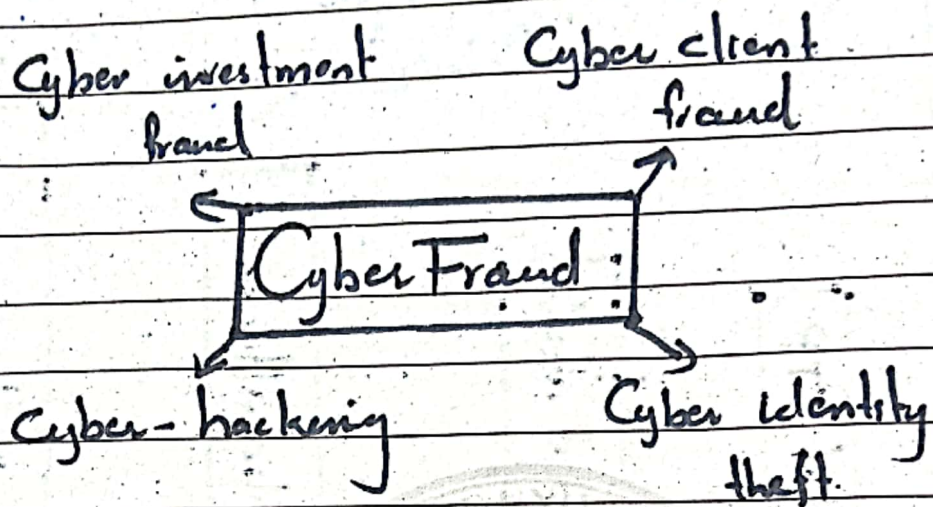 Cyber investment
fraud
Cyber client
fraud
Cyber Fraud
Cyber-hacking
Cyber identity
theft.